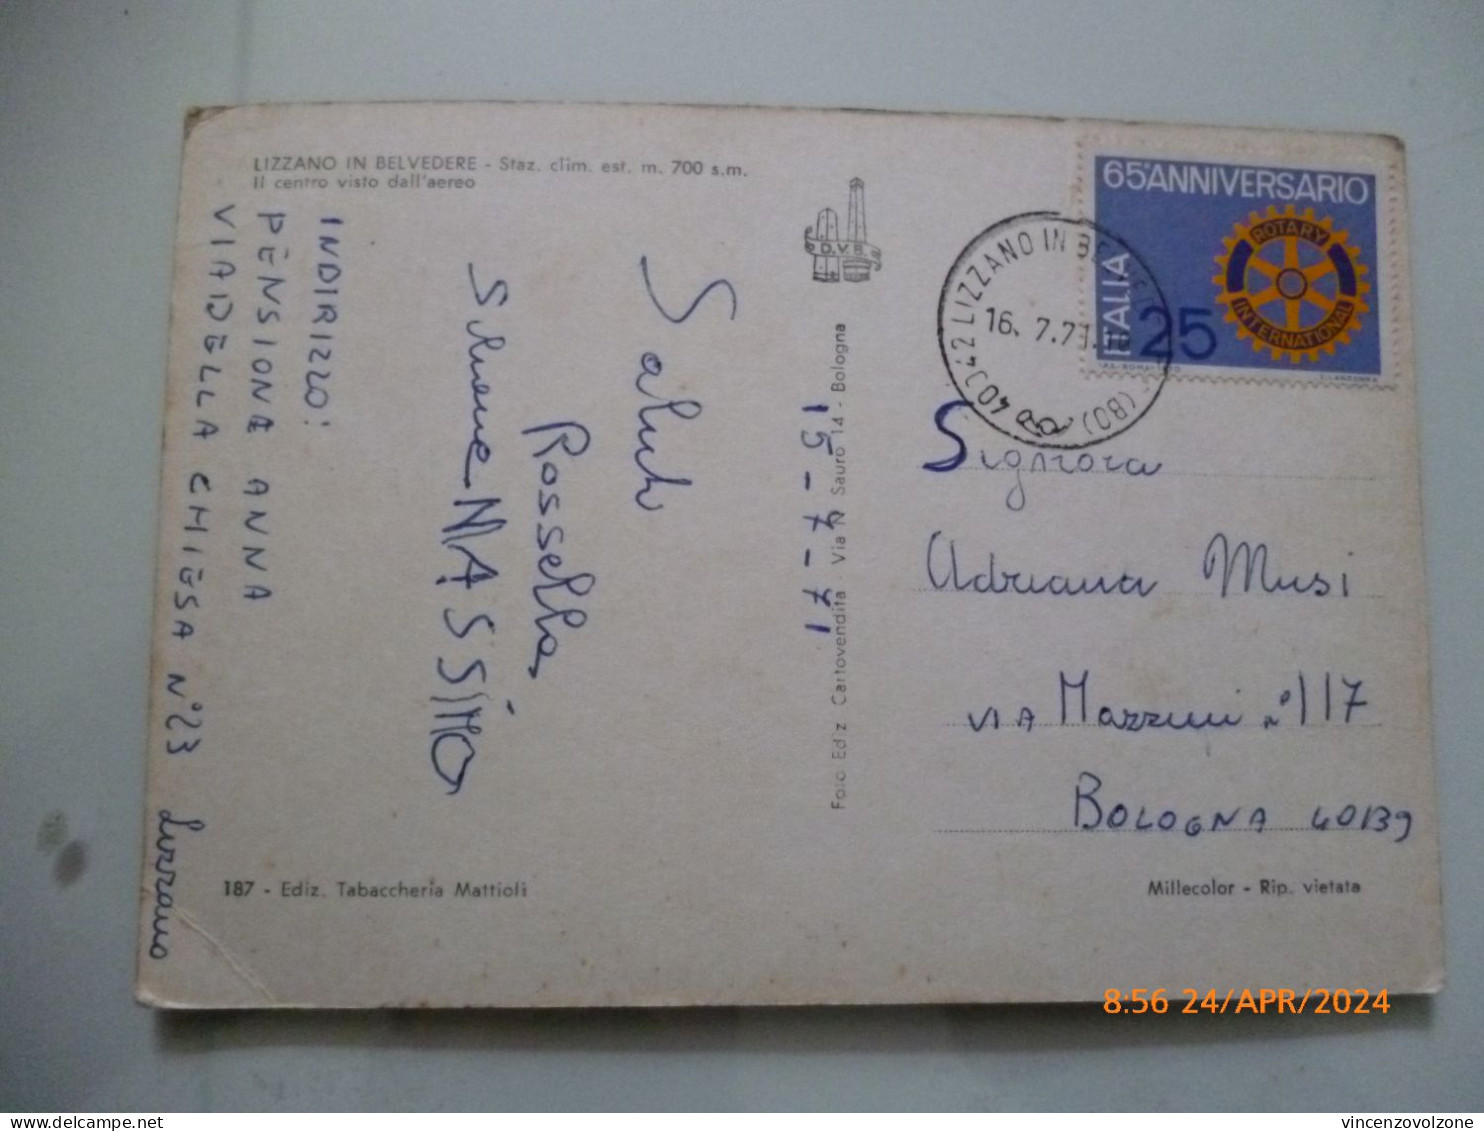 LIZZANO IN BELVEDERE - Staz. clim. est. m. 700 s.m.
Il centro visto dall'aereo
INDIRIZZO:
PENSIONE ANNA
VIA DELLA CHIESA N°23 Lizzano
Saluti
Rossella
Simone MASSIMO
15-7-71
D.V.B.
Foto Ediz. Cartovendita - Via N. Sauro 14 - Bologna
65°ANNIVERSARIO
ITALIA
25
ROTARY
INTERNATIONAL
40042 LIZZANO IN BELVEDERE (BO)
16.7.71.
Signora
Adriana Musi
VIA Mazzini n°117
BOLOGNA 40139
187 - Ediz. Tabaccheria Mattioli
Millecolor - Rip. vietata
8:56 24/APR/2024
vincenzovolzone